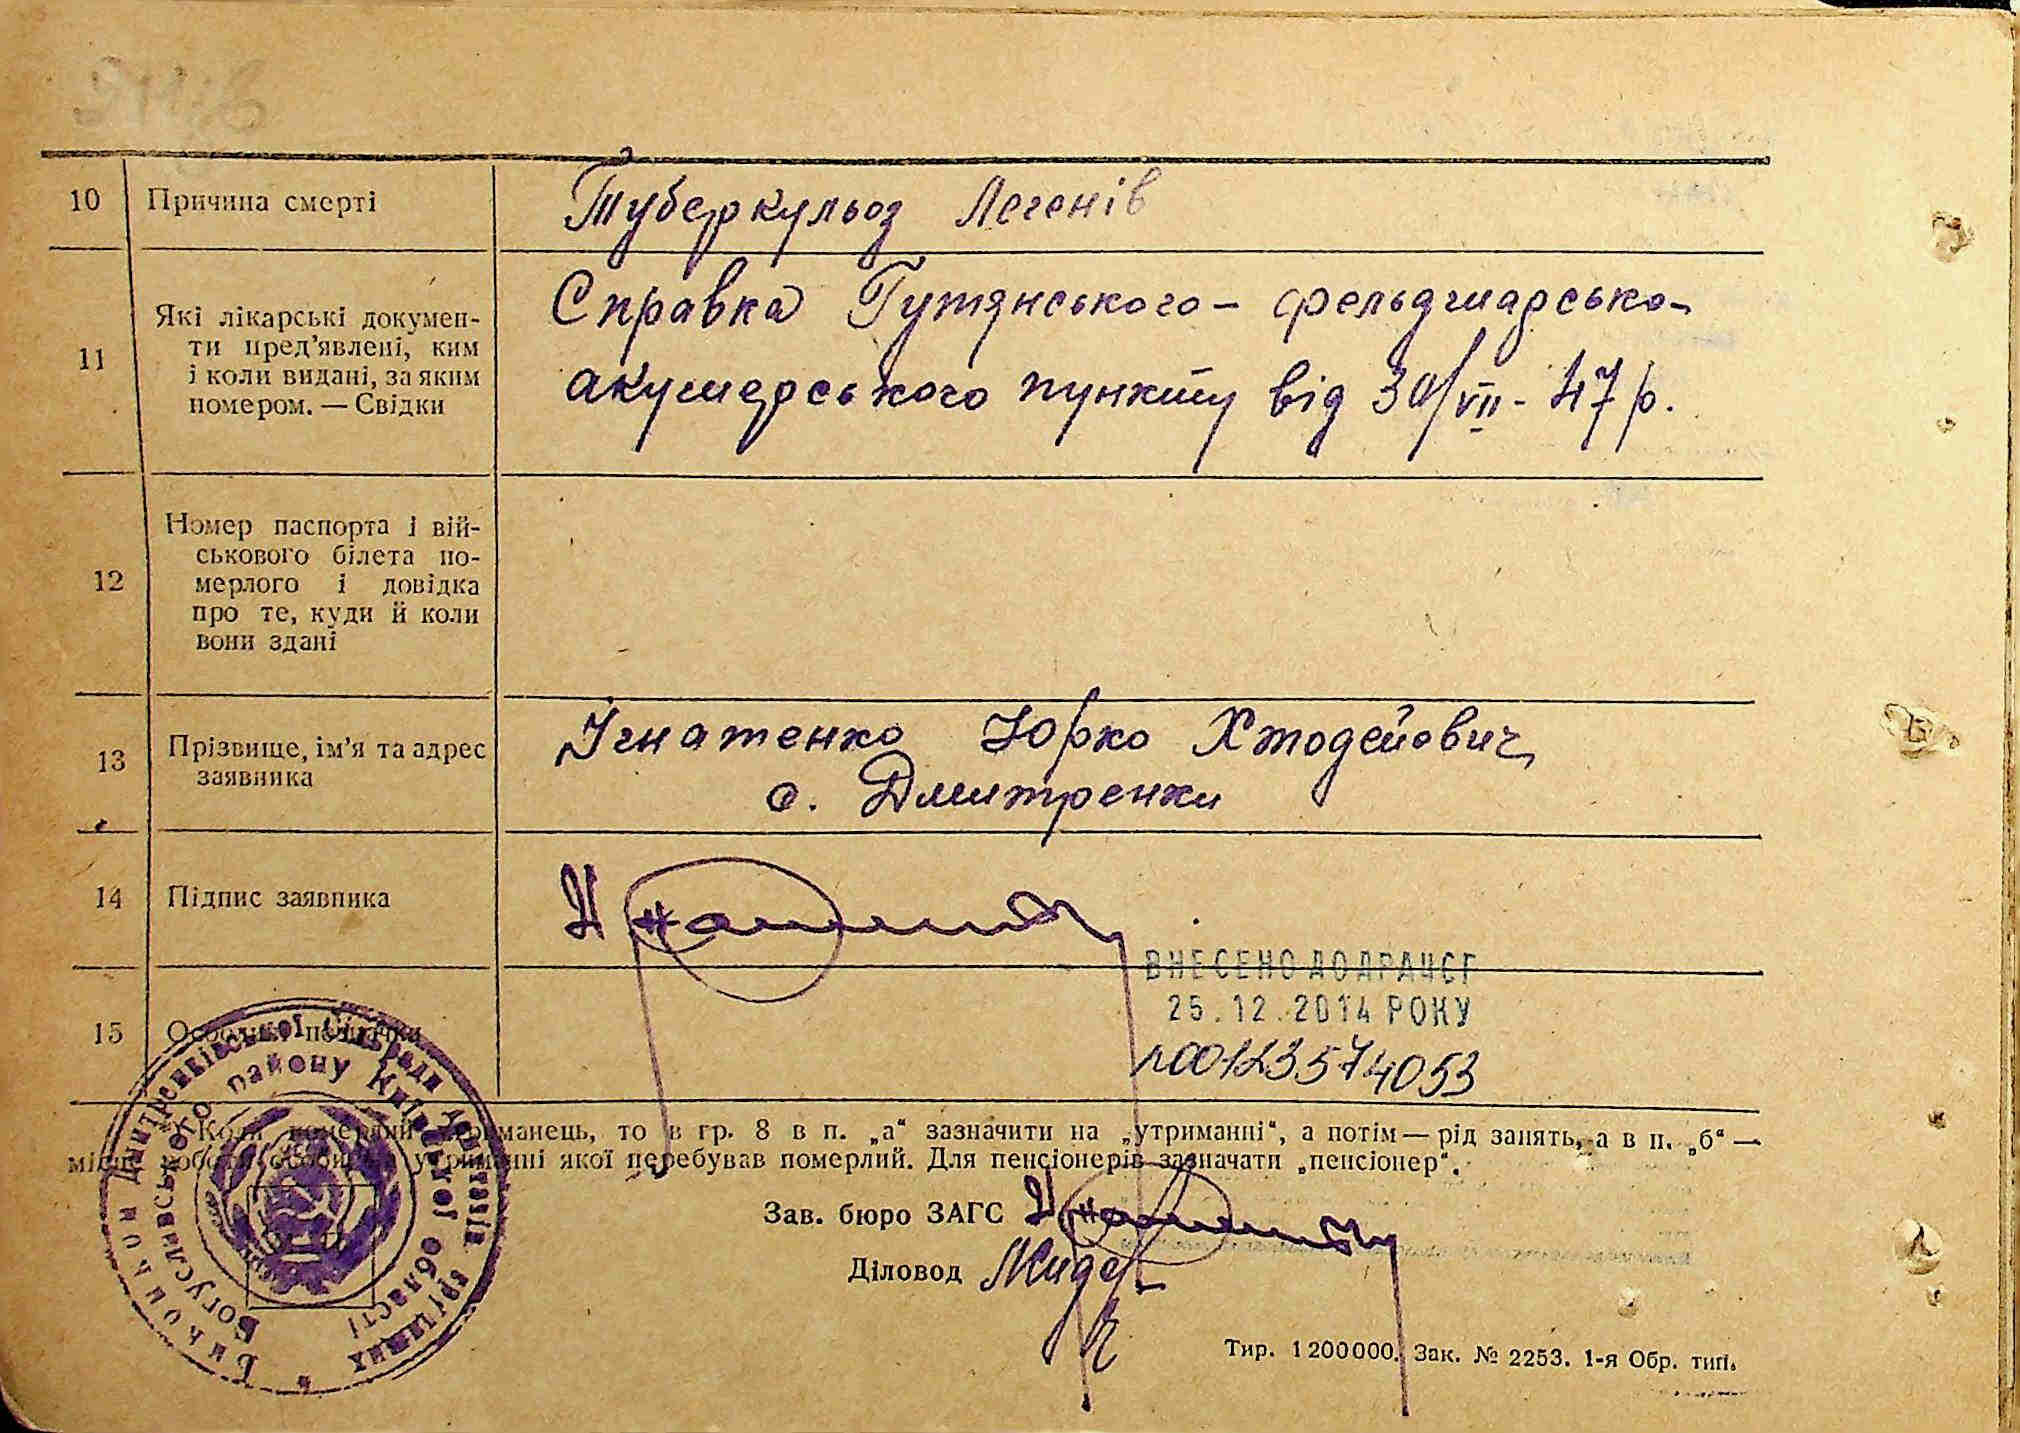 10 Причина смерті Туберкульоз Легенів
11 Які лікарські докумен-
ти пред'явлені, ким
і коли видані, за яким
номером. — Свідки
Справка Гутянського - фельдшарсько-
акушерського пункту від 30/VII - 47 р.
12 Номер паспорта і вій-
ськового білета по-
мерлого і довідка
про те, куди й коли
вони здані
13 Прізвище, ім'я та адрес
заявника
Ігнатенко Юрко
с. Дмитренки
14 Підпис заявника
ВНЕСЕНО ДО ДРАЦСГ
25.12.2014 РОКУ
15 Особливі
00123574053
Коли померлий утриманець, то в гр. 8 в п. „а“ зазначити на „утриманні“, а потім — рід занять, а в п. „б“ —
місце роботи особи, на утриманні якої перебував померлий. Для пенсіонерів зазначати „пенсіонер“.
Зав. бюро ЗАГС
Діловод
Тир. 1200000. Зак. № 2253. 1-я Обр. тип.
Дмитренківської сільради депутатів трудящих
Богуславського району Київської області